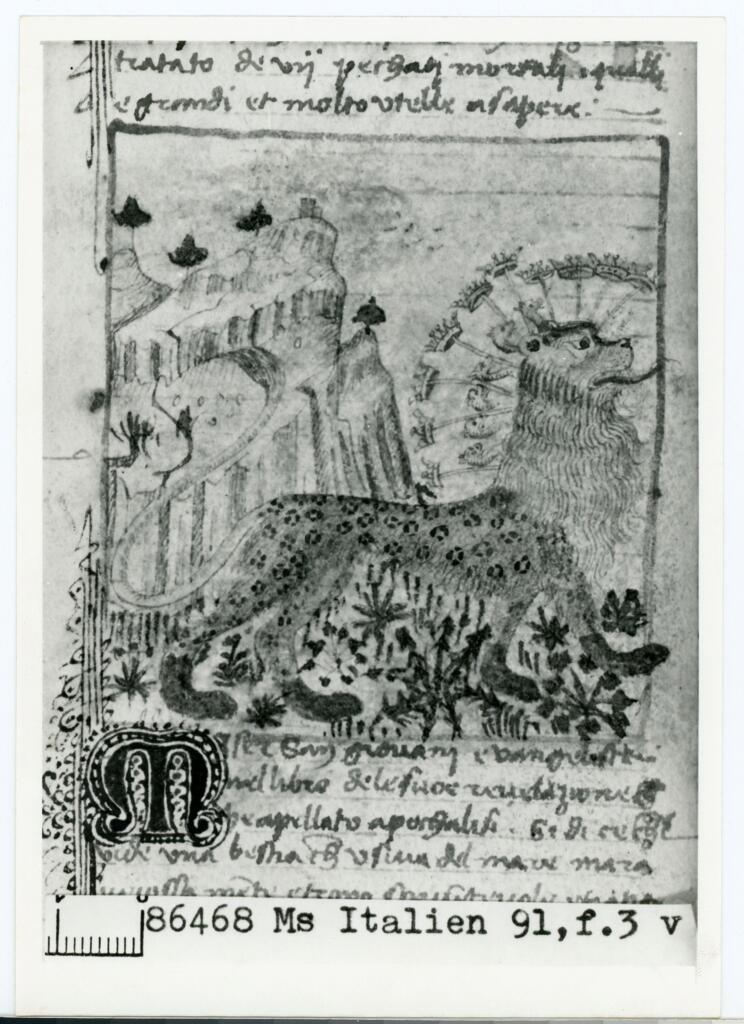 tratato de vij pechatj mortalj quallj
e grandi et molto vtelle a sapere:
Mser San giouanj evangelista
nel libro dele sue reuelazione
he apellato apochalisi. Et di ce ch
vide vna bestia ch vsiua del mare mara
86468 Ms Italien 91,f.3 v